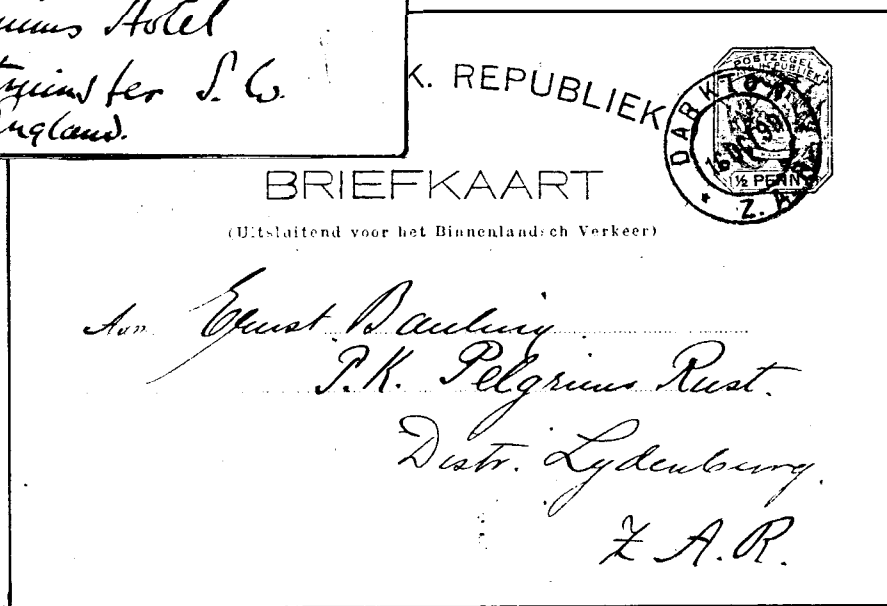 Hotel
S. W.
England.
K. REPUBLIEK
POSTZEGEL
REPUBLIEK
½ PENN
DARKTON
16 OCT 99
Z. A. R.
BRIEFKAART
(Uitsluitend voor het Binnenlandsch Verkeer)
Aan Ernst Bauling
P.K. Pelgrims Rust.
Distr. Lydenburg.
Z. A. R.